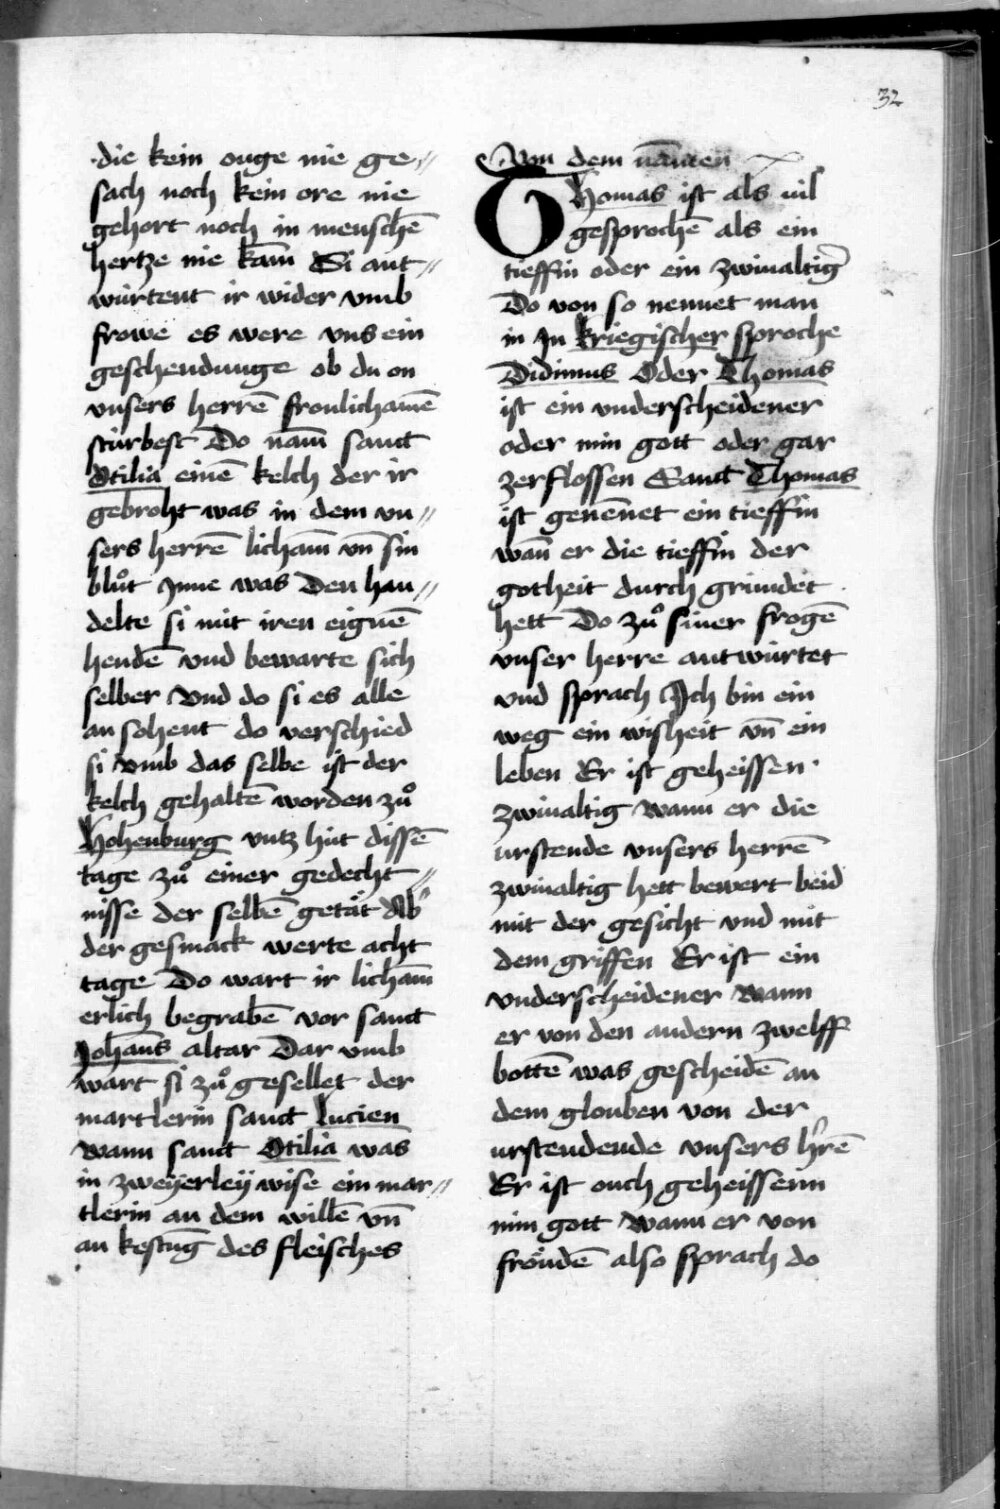 32
die kein ouge nie ge„
sach noch kein ore nie
gehort noch in menschē
hertze nie kam Si ant„
würtent ir wider vmb
frowe es were vns ein
geschendunge ob du on
vnsers herrē fronlichamē
stürbest Do nam sanct
Otilia einē kelch der ir
gebroht was in dem vn„
sers herrē licham vn̄ sin
blůt Inne was Den han„
delte si mit iren eignē
hendē vnd bewarte sich
selber Vnd do si es alle
an sohent do verschied
si vmb das selbe ist der
kelch gehaltē worden zů
Hohenburg vntz hüt dissē
tage zů einer gedecht„
nisse der selbē getät Ab'
der gesmack werte acht
tage Do wart ir licham
erlich begrabē vor sanct
Johans altar Dar vmb
wart si zů gesellet der
martlerin sanct lucien
Wann sanct Otilia was
in zweÿerleÿ wise ein mar„
tlerin an dem willē vn̄
an kestūg des fleisches
Von dem namen
Thomas ist als vil
gesprochē als ein
tieffin oder ein zwiualtig'
Do von so nennet man
in In kriegischer sproche
Didimus Oder Thomas
ist ein vnderscheidener
oder min gott oder gar
zerflossen Sanct Thomas
ist genēnet ein tieffin
wan̄ er die tieffin der
gotheit durch gründet
hett Do zů siner frogē
vnser herre antwürtet
vnd sprach Ich bin ein
weg ein wisheit vn̄ ein
leben Er ist geheissen
zwiualtig Wann er die
urstende vnsers herrē
zwiualtig hett bewert beid
mit der gesicht vnd mit
dem griffen Er ist ein
vnderscheidener Wann
er von den andern zwelff
bottē was gescheidē an
dem glouben von der
urstendende vnsers h'rē
Er ist ouch geheissenn
min gott Wann er von
fröudē also sprach do